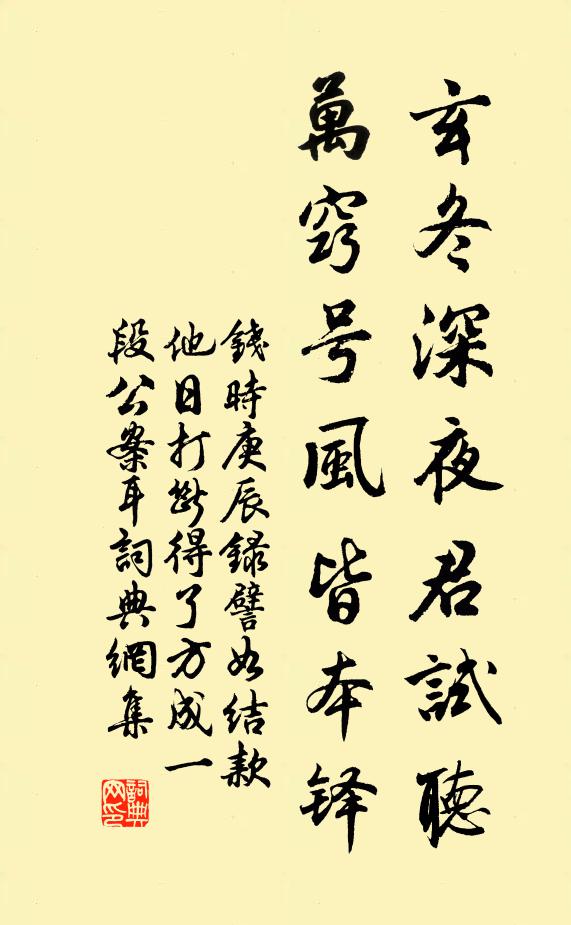 玄冬深夜君試聽
萬窍号風皆本铎
錢時庚辰録譬如結款
他日打斷得了方成一
段公案耳詞典網集
詞典网印